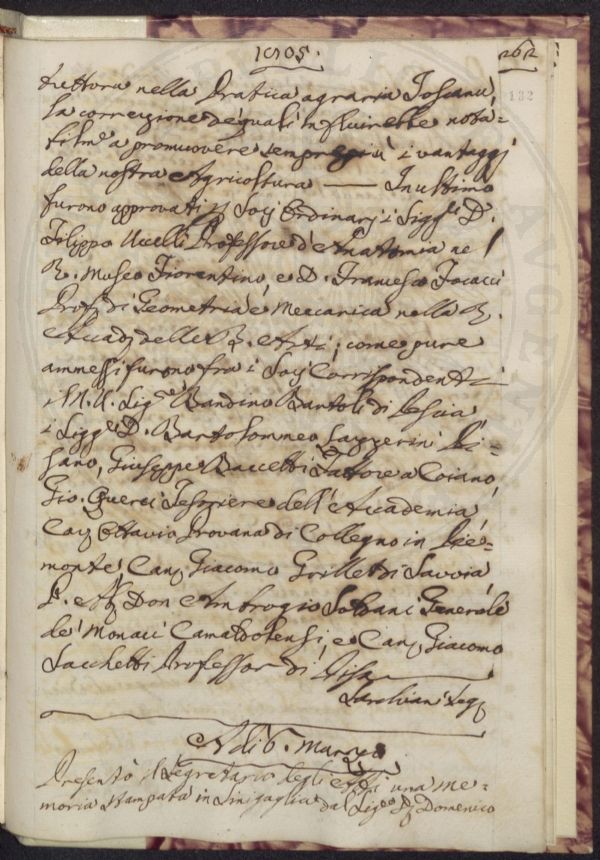 1805.
262
132
tuttora nella Pratica agraria Toscana,
la correzione de quali influirebbe nota-
bilm.e a promuovere sempre più i vantaggi
della nostra Agricoltura —— In ultimo
furono approvati p Socj Ordinarj i Sigg.i D.
Filippo Uccelli Professore d'Anatomia nel
R. Museo Fiorentino, e D. Francesco Focacci
Prof. di Geometria e Meccanica nella R.
Accad. delle B. Arti; come pure
ammessi furono fra i Socj Corrispondenti
i N. N. Sig.re Bandino Bartoli di Pescia
i Sigg.i D. Bartolommeo Pi-
sano, Giuseppe Baccetti Fattore a Coiano,
Gio. Querci Tesoriere dell'Accademia
Cav. Ottavio Provana di Collegno in Pie-
monte Can. Giacomo Grillet di Savoia,
P. Ab. Don Ambrogio Soldani Generale
de' Monaci Camaldolensi, e Can. Giacomo
Sacchetti Professor di Pisa
Sarchiani Seg.
A di 6. Marzo
Presentò il Segretario degli Atti una me-
moria stampata in Sinigaglia dal Sig.e Domenico